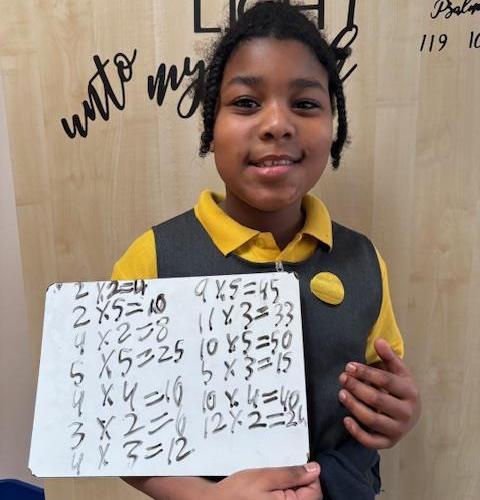 LIGHT
unto my
Psalm
119 10
2 x 2 = 4
2 x 5 = 10
4 x 2 = 8
5 x 5 = 25
4 x 4 = 16
3 x 2 = 6
4 x 3 = 12
9 x 5 = 45
11 x 3 = 33
10 x 5 = 50
5 x 3 = 15
10 x 4 = 40
12 x 2 = 24